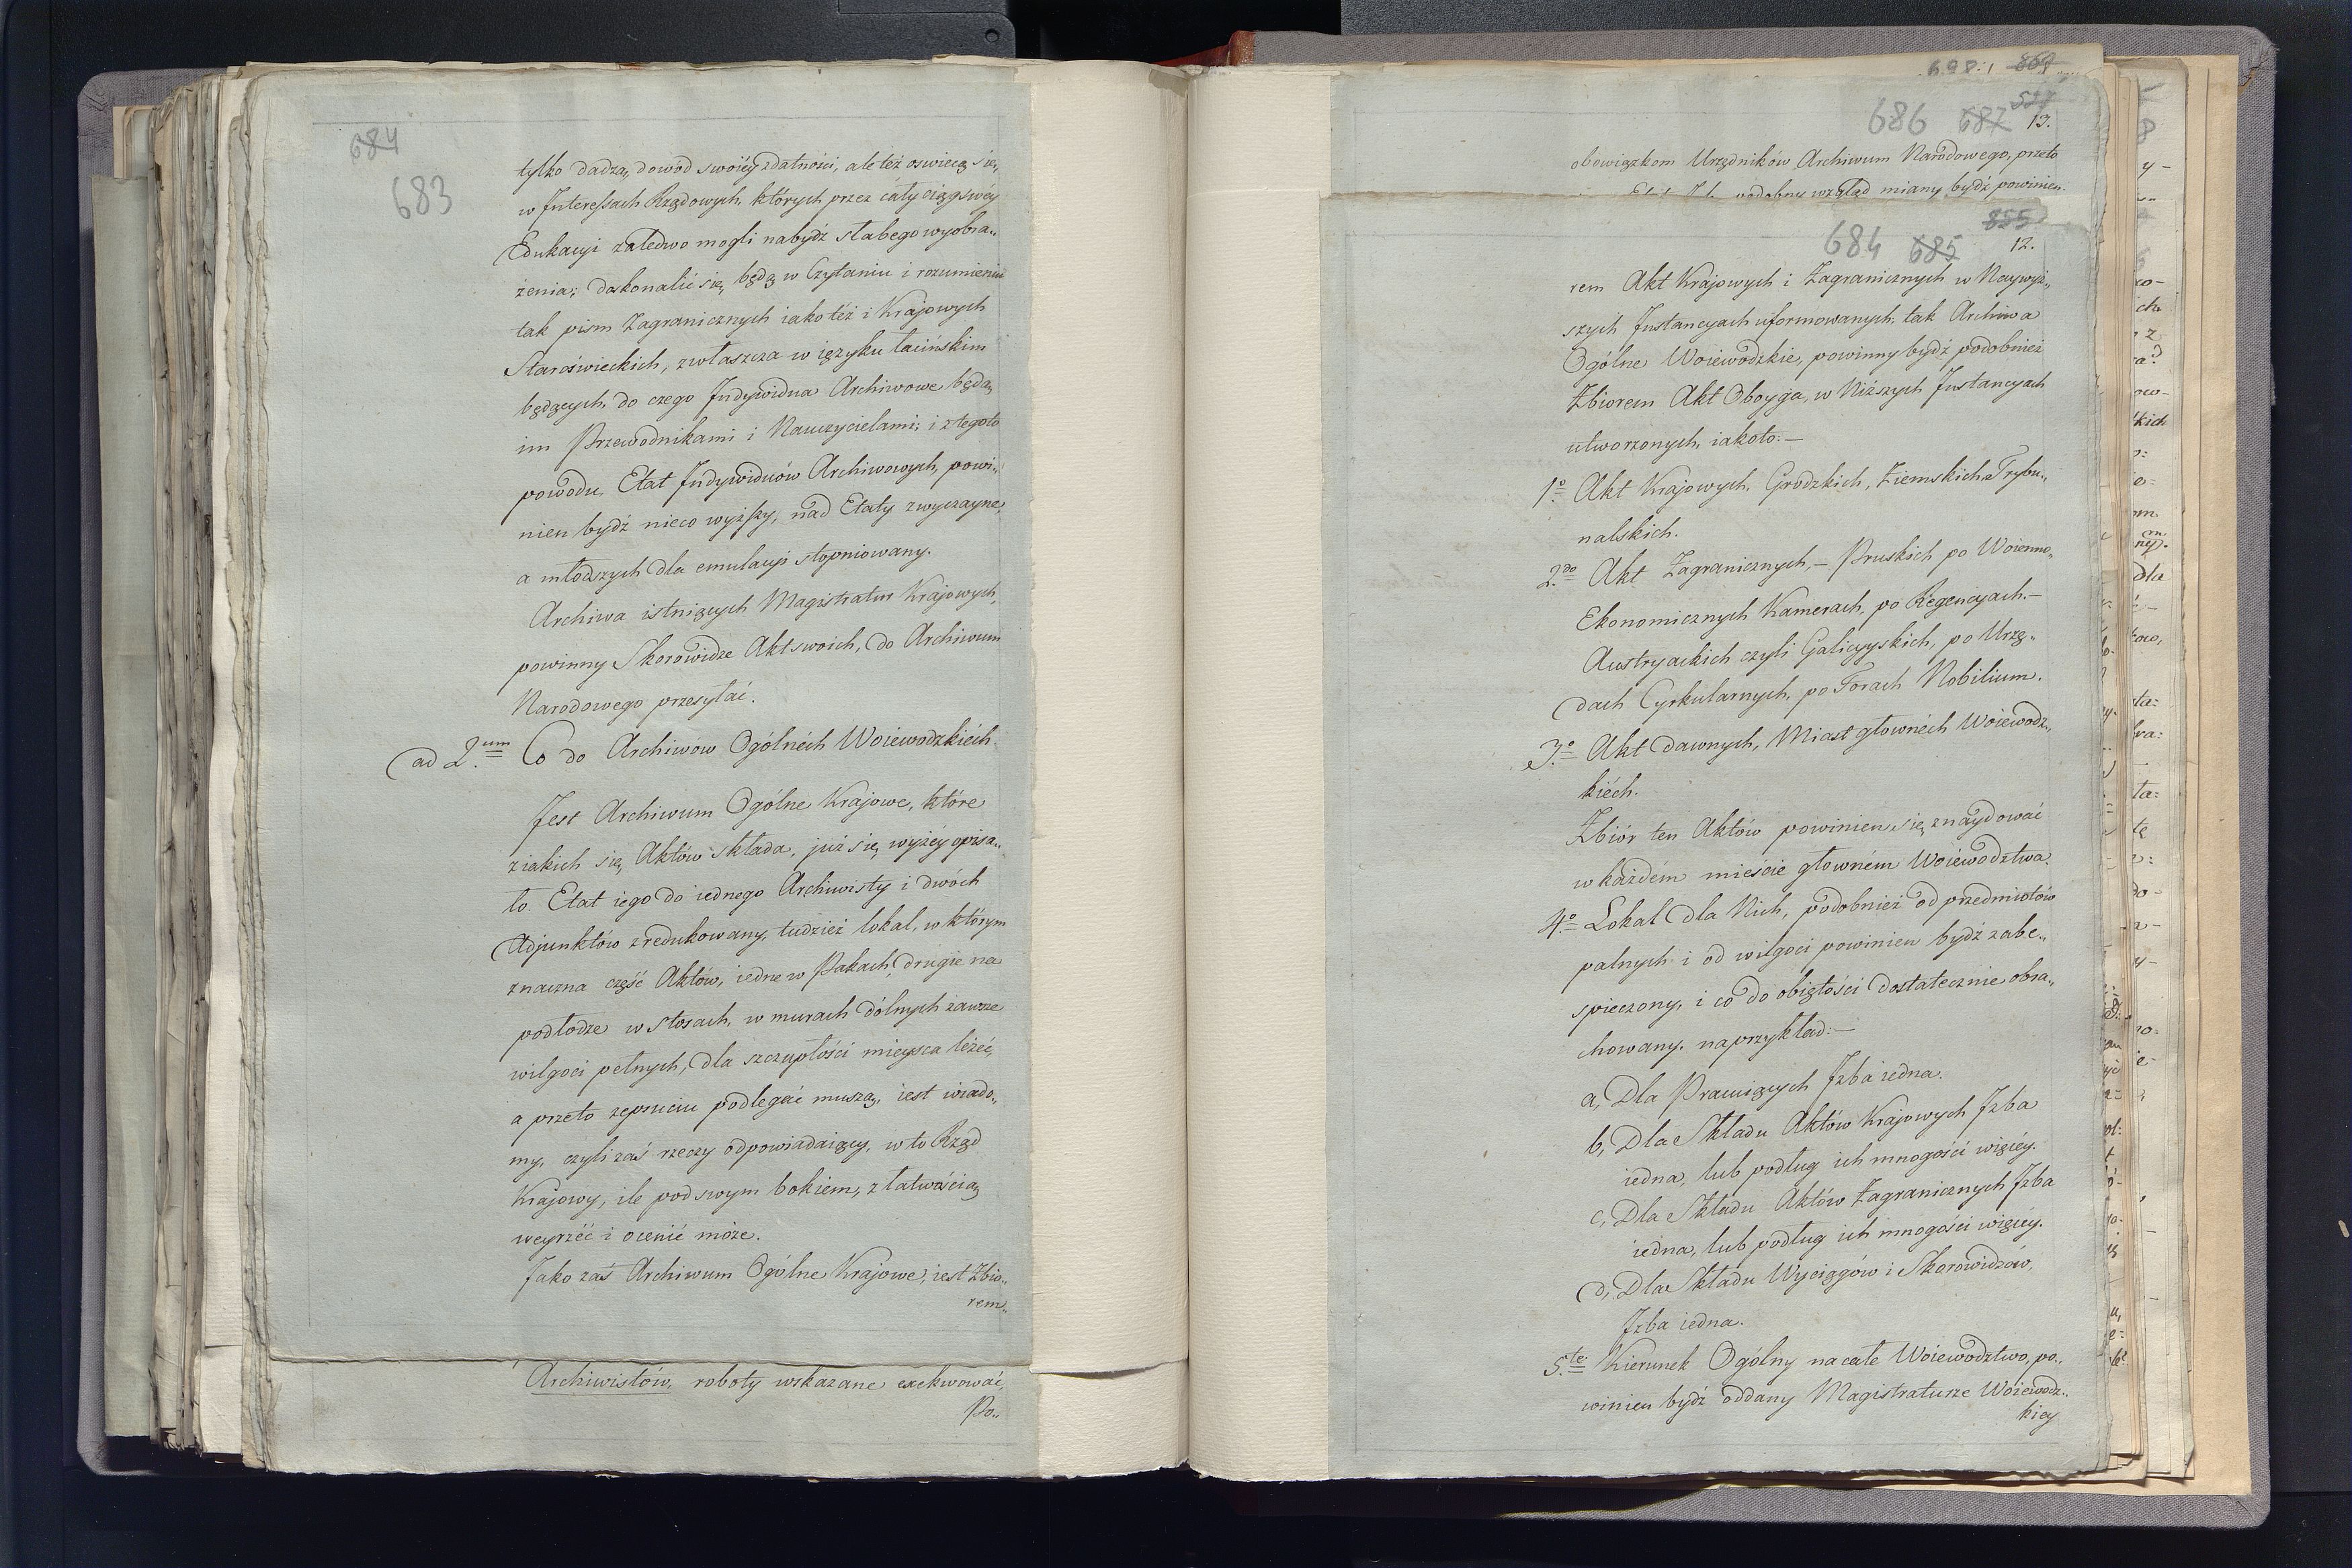 684
683
tylko dadzą, dowód swoiéy zdatności, ale też oswiecą się,
w Interessach Rządowych, których przez cały ciąg swéy
Edukacyi zaledwo mogli nabydź słabego wyobra„
żenia; doskonalić się, będą w Czytaniu i rozumieniu
tak pism Zagranicznych iako też i Krajowych
Staroświeckich, zwłaszcza w ięzyku łacińskim
będących, do czego Indywidua Archiwowe będą,
im Przewodnikami i Nauczycielami; i z tegoto
powodu, Etat Indywiduów Archiwowych, powi„
nien bydź nieco wyższy, nad Etaty zwyczayne,
a młodszych dla emulacyi stopniowany.
Archiwa istniących Magistratur Krajowych,
powinny Skorowidze Akt swoich, do Archiwum
Narodowego przesyłać.
ad 2.um Co do Archiwów Ogólnéch Woiewodzkiéch.
Jest Archiwum Ogólne Krajowe, które
z iakich się, Aktów składa, już się, wyżéy opisa„
ło. Etat iego do iednego Archiwisty i dwóch
Adjunktów zredukowany, tudzież lokal, w którym
znaczna część Aktów, iedne w Pakach, drugie na
podłodze w stosach, w murach dólnych zawsze
wilgoci pełnych, dla szczupłości mieysca leżeć,
a przeto zepsuciu podlegać muszą, iest wiado„
my, czyli zaś rzeczy odpowiadaiący, w to Rząd
Krajowy, ile pod swym bokiem, z łatwością,
weyrźéć i ocenić może.
Jako zaś Archiwum Ogólne Krajowe, iest Zbio„
rem„
Archiwistów, roboty wskazane exekwować,
Po„
698.
869
527
686 687 13.
obowiązkom Urzędników Archiwum Narodowego, przeto
podobny wzgląd miany bydź powinien.
855
684 685 12.
rem Akt Krajowych i Zagranicznych w Naywyż„
szych Instancyach uformowanych, tak Archiwa
Ogólne Woiewodzkie, powinny bydź podobnież
Zbiorem Akt Oboyga, w Niższych Instancyach
utworzonych, iakoto:—
1.o Akt Krajowych, Grodzkich, Ziemskich, Trybu„
nalskich.
2.do Akt Zagranicznych,— Pruskich po Woienno,
Ekonomicznych Kamerach, po Regencyach.—
Austryackich czyli Galicyyskich, po Urzę„
dach Cyrkularnych, po Forach Nobilium.
3.o Akt dawnych, Miast głownéch Woiewodz„
kiéch.
Zbiór ten Aktów powinien się znaydować
w każdém mieście głowném Woiéwodztwa.
4.o Lokal dla Nich, podobnież od przedmiotów
palnych i od wilgoci powinien bydź zabe„
spieczony, i co do obiętości dostatecznie obra„
chowany. naprzykład:—
a, Dla Pracuiących Jzba iedna.
b, Dla Składu Aktów Krajowych Jzba
iedna, lub podług ich mnogości więcéy.
c, Dla Składu Aktów Zagranicznych Jzba
iedna, lub podług ich mnogości więcéy.
d, Dla Składu Wyciągów i Skorowidzów,
Jzba iedna.
5.te Kierunek Ogólny na całe Woiewodztwo, po„
winien bydź oddany Magistraturze Woiewodz„
kiey